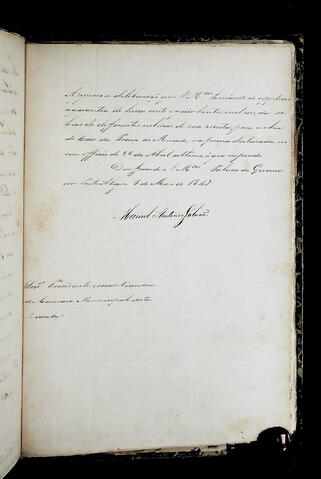 Approvo a deliberação que V. M.ces tomárão de applicar
a quantia de hum conto e oito centos mil reis, das so
bras de differentes rubricas de sua receita, para a obra
do Caes da Praça do Mercado, na forma declarada no
seu officio de 28 de Abril ultimo, a que respondo.
Deos Guarde a V. M.ces Palacio do Governo
em Porto Alegre 3 de Maio de 1847
Manuel Antonio Galvão
Snr.es Presidente e mais Vereadores
da Camara Municipal desta
Cidade